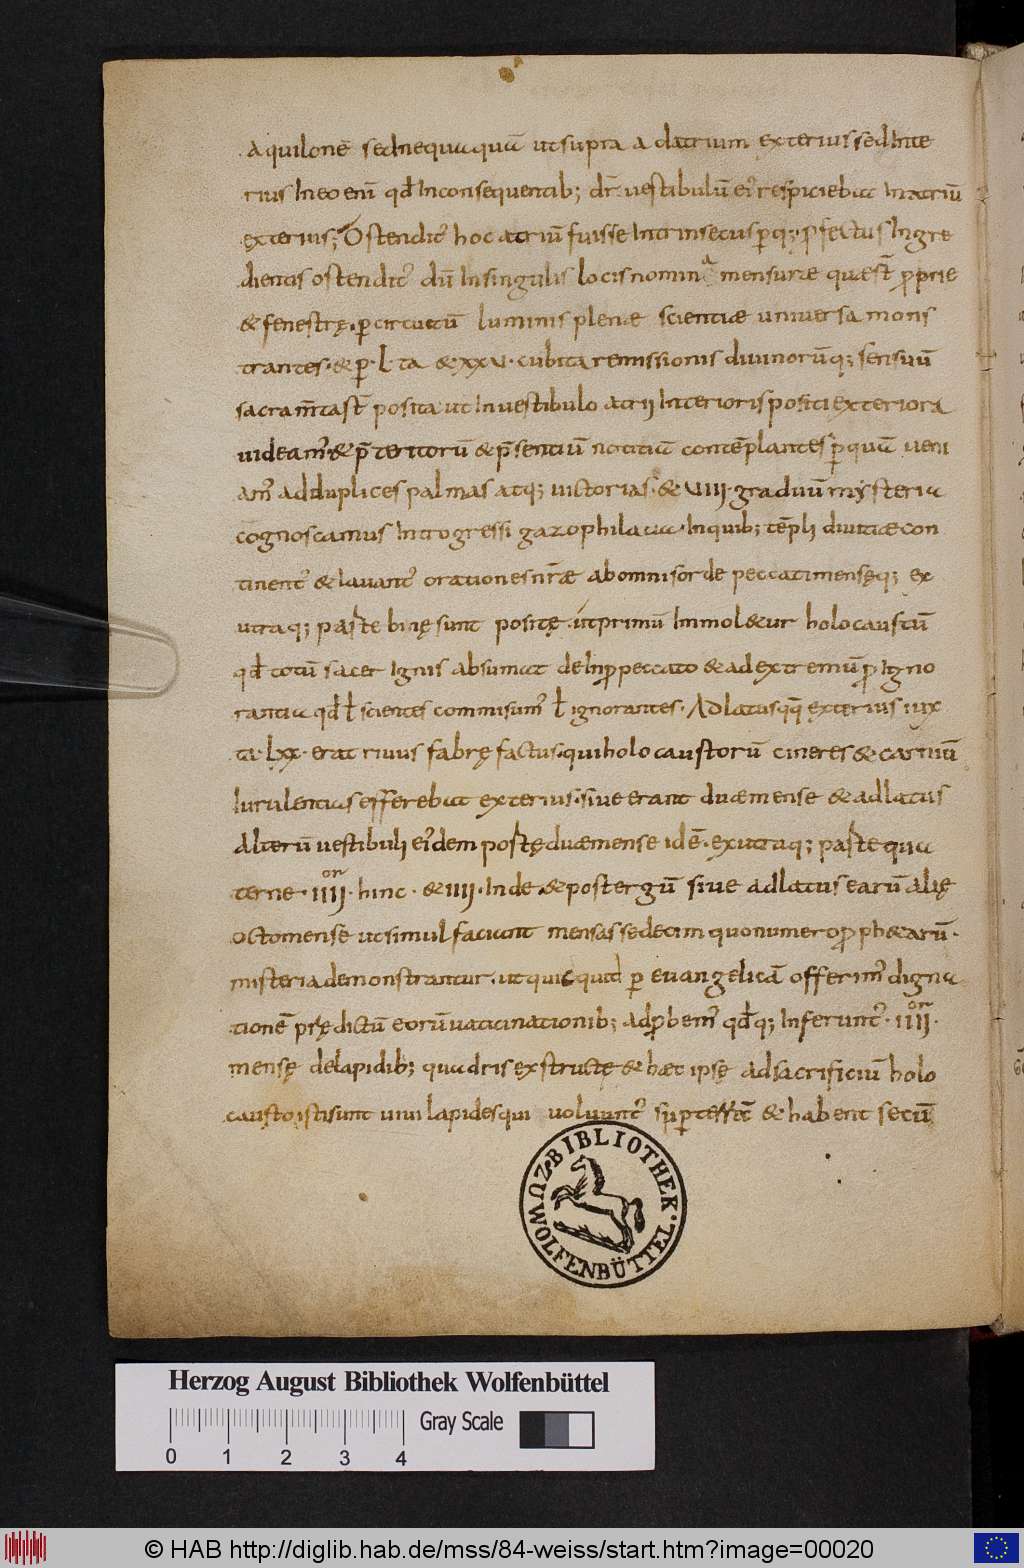 Aquilonē sed nequaquā ut supra ad atrium exterius sed Inte
rius In eo enī qđ Inconsequentib; dr̄ vestibulū ei᾽ respiciebat In atriū
exterius; Ostendit᾽ hoc atriū fuisse Intrinsecus ꝑq; ꝓfectus Ingre
dientis ostendit᾽ dū In singulis locis nominā mensuræ quæ sт̄ ꝓprie
& fenestrę ꝑ circuitū luminis plenæ scientiæ universa mons
trantes · & ꝑ · L · ta & xxv · cubita remissionis divinorūq; sensuū
sacram̄ta sт̄ posita ut In vestibulo atrii Interioris positi exteriora
uideam᾽ · & p̄teritorū & p̄sentiū notitiā contēplantes ꝑ quā veni
am᾽ ad duplices palmas atq; victorias · & VIIII · graduū mysteria
cognoscamus Introgressi gazophilacia · In quib; tēpli divitiæ con
tinent᾽ & lavant᾽ orationes nr̄æ ab omni sorde peccati mensęq; ex
utraq; parte binę sunt positę ut primū Immol&ur holocaustū
qđ totū sacer Ignis absumat deIn ꝓ peccato & ad extremū ꝓ Igno
rantia qđ ł scientes commisim᾽ ł ignorantes · Ad latus qq̄ exterius iux
ta · lxx · erat rivus fabrę factus · qui holocaustorū cineres & carniū
lurulentias efferebat exterius · sive erant duæ mense & ad latus
Alterū vestibuli ei᾽dem portę duæ mense id ē · ex utraq; parte qua
terne · IIII or · hinc · & IIII · Inde · & post ergū sive ad latus earū alię
octo mense ut simul faciant mensas sedecim quo numero ꝓph&arū ·
misteria demonstrantur · ut quicquid ꝑ evangelicā offerim᾽ digna
tionē prędictū eorū vaticinationib; adꝓbem᾽ qđq; Inferunt᾽ · IIII or ·
mensę de lapidib; quadris exstructę & hæc ipsę ad sacrificiū holo
causto isti sunt vivi lapides qui volvunt᾽ suꝑ terrā & habent secū
BIBLIOTHEK · ZU WOLFENBÜTTEL ·
Herzog August Bibliothek Wolfenbüttel
Gray Scale
0 1 2 3 4
© HAB http://diglib.hab.de/mss/84-weiss/start.htm?image=00020